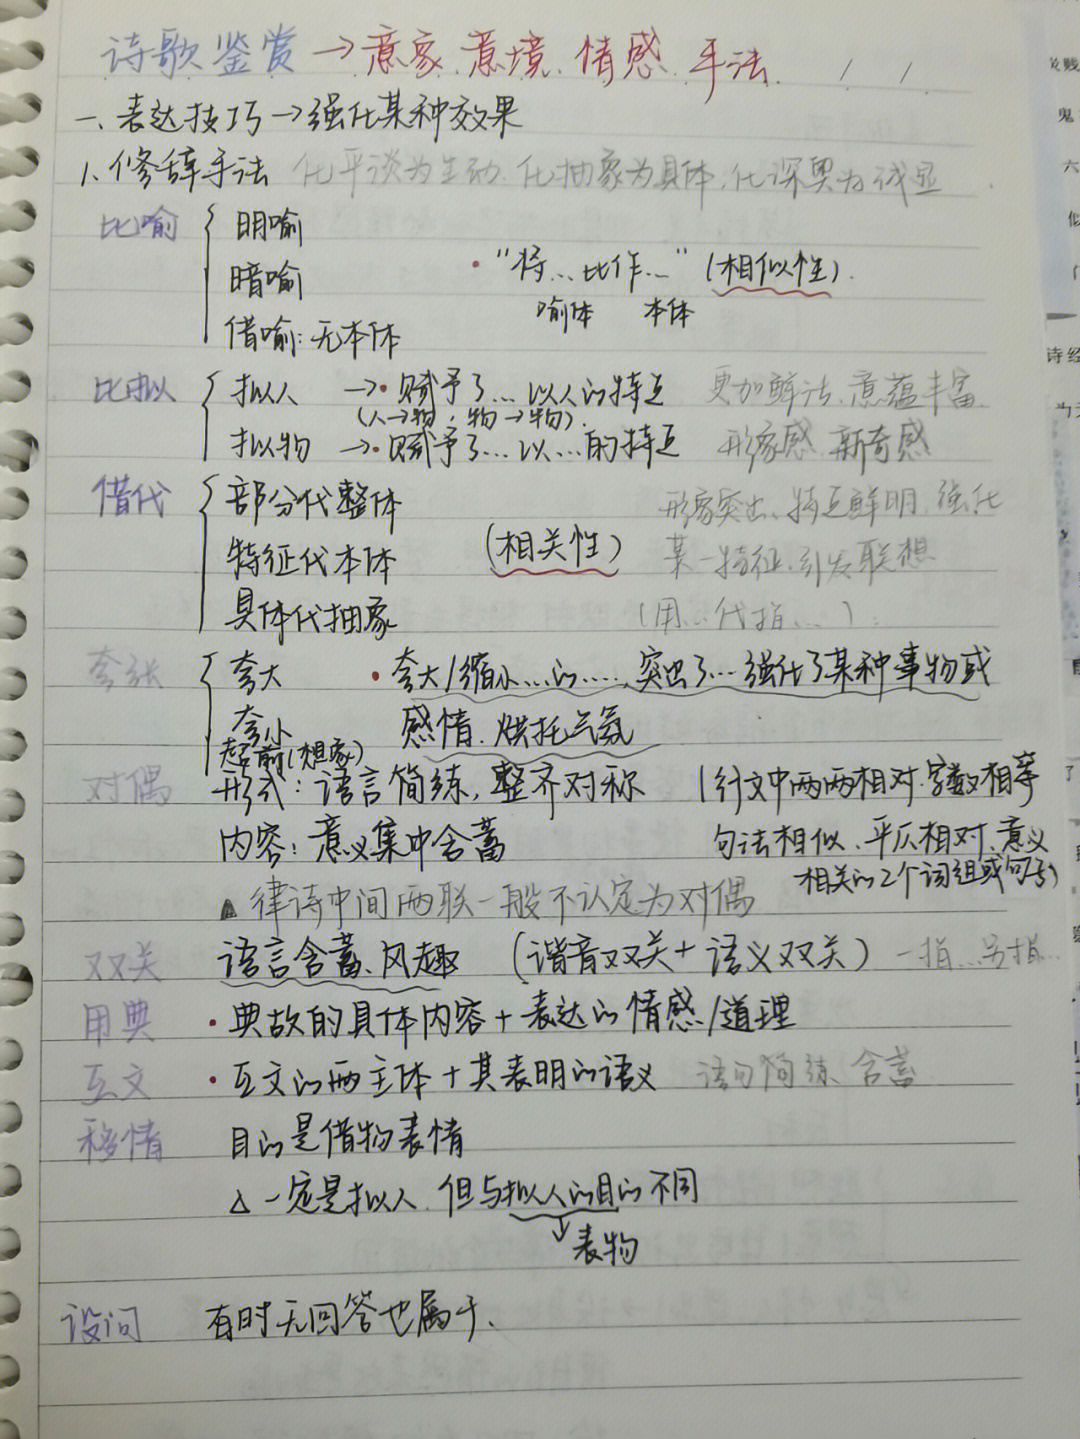 诗歌鉴赏→意象.意境.情感.手法.
一、表达技巧→强化某种效果
1.修辞手法 化平谈为生动.化抽象为具体,化深奥为浅显
比喻 { 明喻
暗喻 ·“将...比作...”(相似性).
喻体 本体
借喻:无本体
比拟 { 拟人 →·赋予了...以人的特点 更加鲜活、意蕴丰富.
(人→物,物→物).
拟物 →·赋予了...以...的特点 形象感 新奇感
借代 { 部分代整体 形象突出、特点鲜明.强化
特征代本体 (相关性) 某一特征.引发联想
具体代抽象 (用...代指...).
夸张 { 夸大 ·夸大/缩小...的....,突出了...强化了某种事物或
夸小 感情.烘托气氛
超前(想象)
对偶 形式:语言简练,整齐对称 行文中两两相对.字数相等
内容:意义集中含蓄 句法相似、平仄相对、意义
相关的2个词组或句子)
▲律诗中间两联一般不认定为对偶
双关 语言含蓄、风趣 (谐音双关+语义双关) 一指...另指...
用典 ·典故的具体内容+表达的情感/道理
互文 ·互文的两主体+其表明的语义 语句简练、含蓄
移情 目的是借物表情
△一定是拟人.但与拟人的目的不同
↓表物
设问 有时无回答也属于、